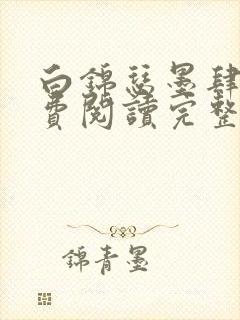 白錦瑟墨肆
費閱讀完整
錦青墨